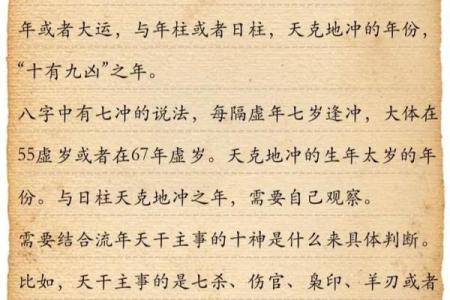 年或者大运，与年柱或者日柱，天克地冲的年份，
“十有九凶”之年。
八字中有七冲的说法，每隔虚年七岁逢冲，大体在
55虚岁或者在67年虚岁。天克地冲的生年太岁的年
份。与日柱天克地冲之年，需要自己观察。
需要结合流年天干主事的十神是什么来具体判断。
比如，天干主事的是七杀、伤官、枭印、羊刃或者